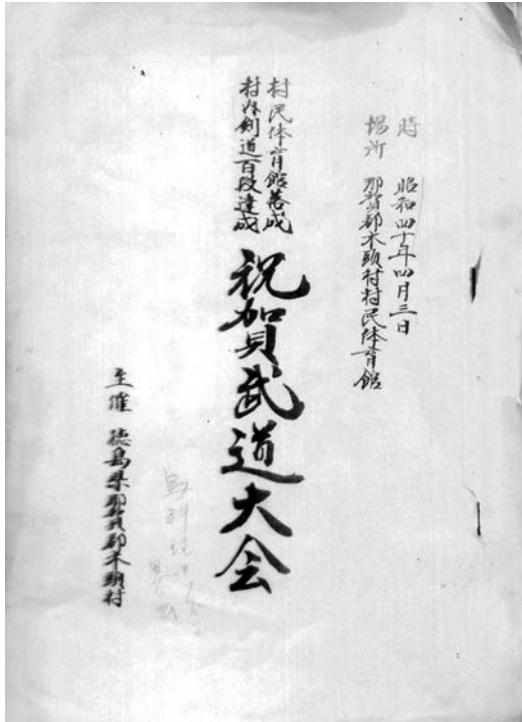 時 昭和四十年四月三日
場所 那賀郡木頭村村民体育館
村民体育館落成
村内剣道百段達成
祝賀武道大会
主催 徳島県那賀郡木頭村